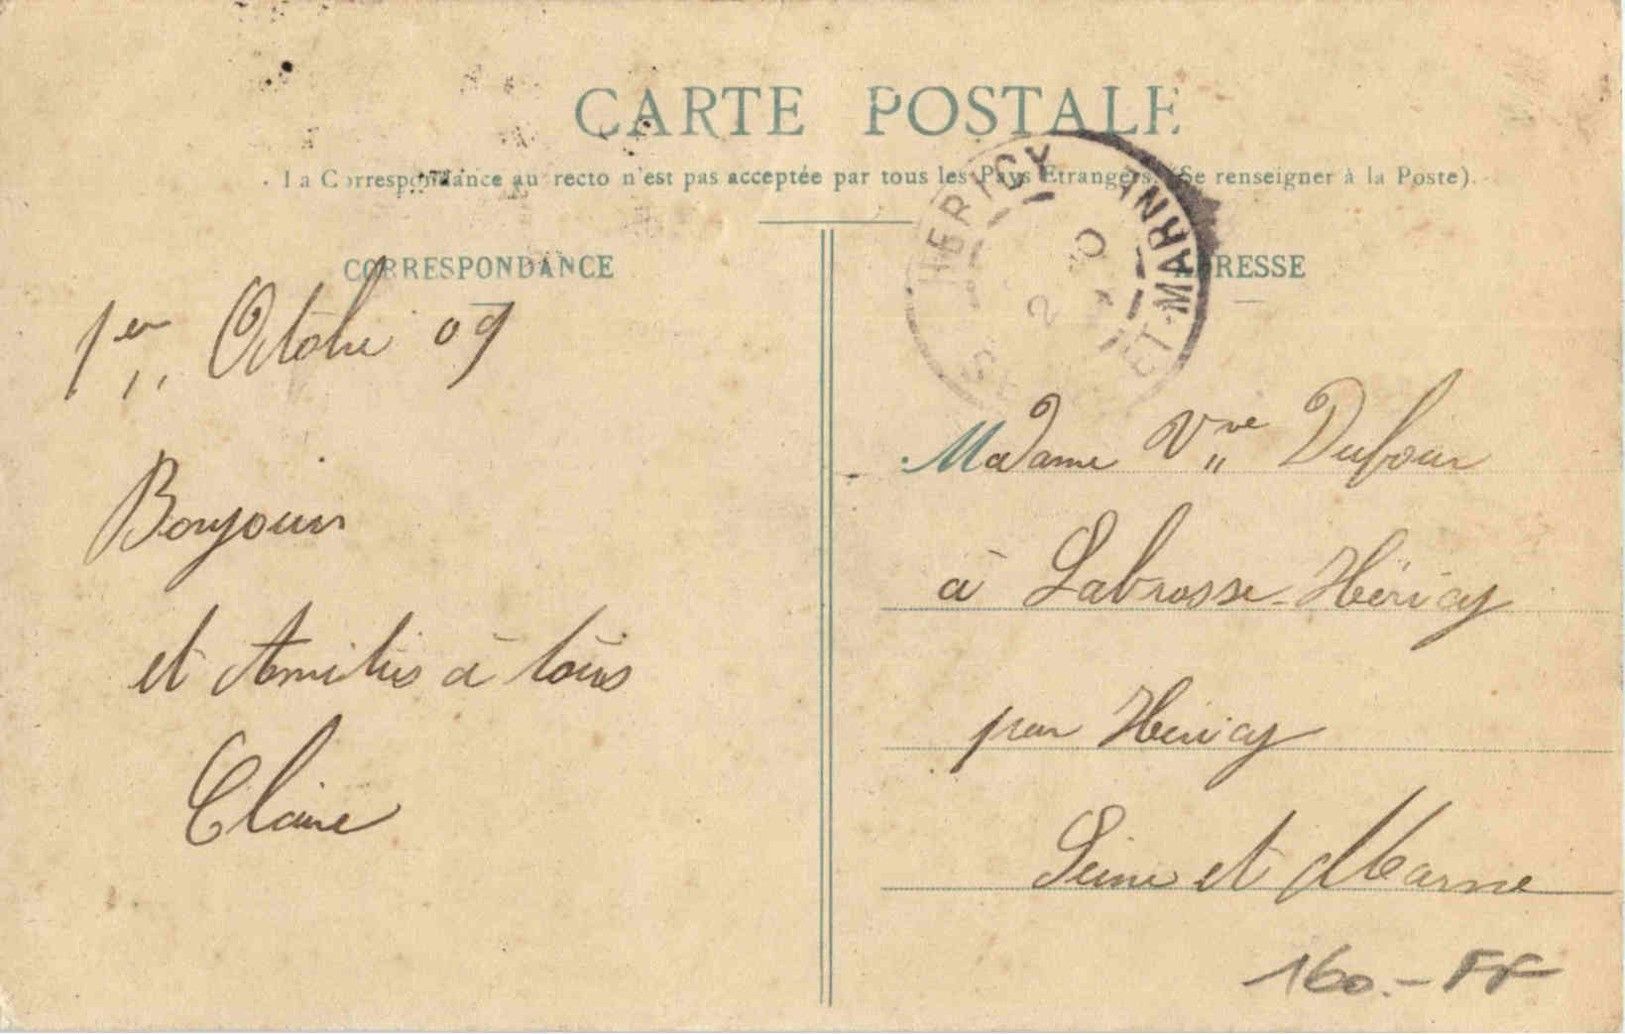 CARTE POSTALE
La Correspondance au recto n'est pas acceptée par tous les Pays Etrangers. (Se renseigner à la Poste).
CORRESPONDANCE
1er Octobre 09
Bonjour
et Amitiés à tous
Claire
ADRESSE
HERICY
SEINE-ET-MARNE
Madame Vve Dufour
à Labrosse-Héricy
par Héricy
Seine et Marne
160.- FF